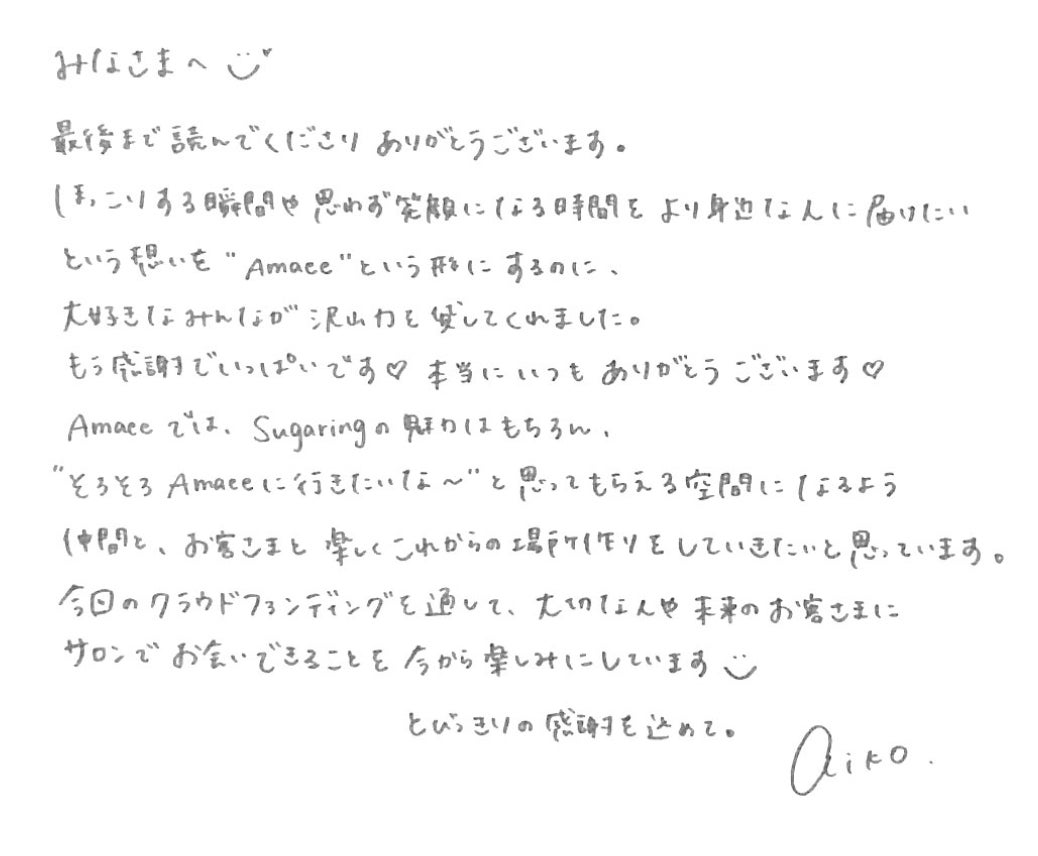 みなさまへ
最後まで読んでくださり ありがとうございます。
ほっこりする瞬間や思わず笑顔になる時間を より身近な人に届けたい
という想いを "Amace" という形にするのに、
大好きなみんなが 沢山力を貸してくれました。
もう感謝でいっぱいです♡ 本当にいつも ありがとうございます♡
Amace では、Sugaringの 魅力はもちろん、
"そろそろ Amaceに行きたいな〜" と思ってもらえる空間になるよう
仲間と、お客さまと 楽しくこれからの場所作りをしていきたいと思っています。
今回のクラウドファンディングを通して、大切な人や未来のお客さまに
サロンで お会いできることを 今から楽しみにしています
とびっきりの感謝を込めて。
Aiko.